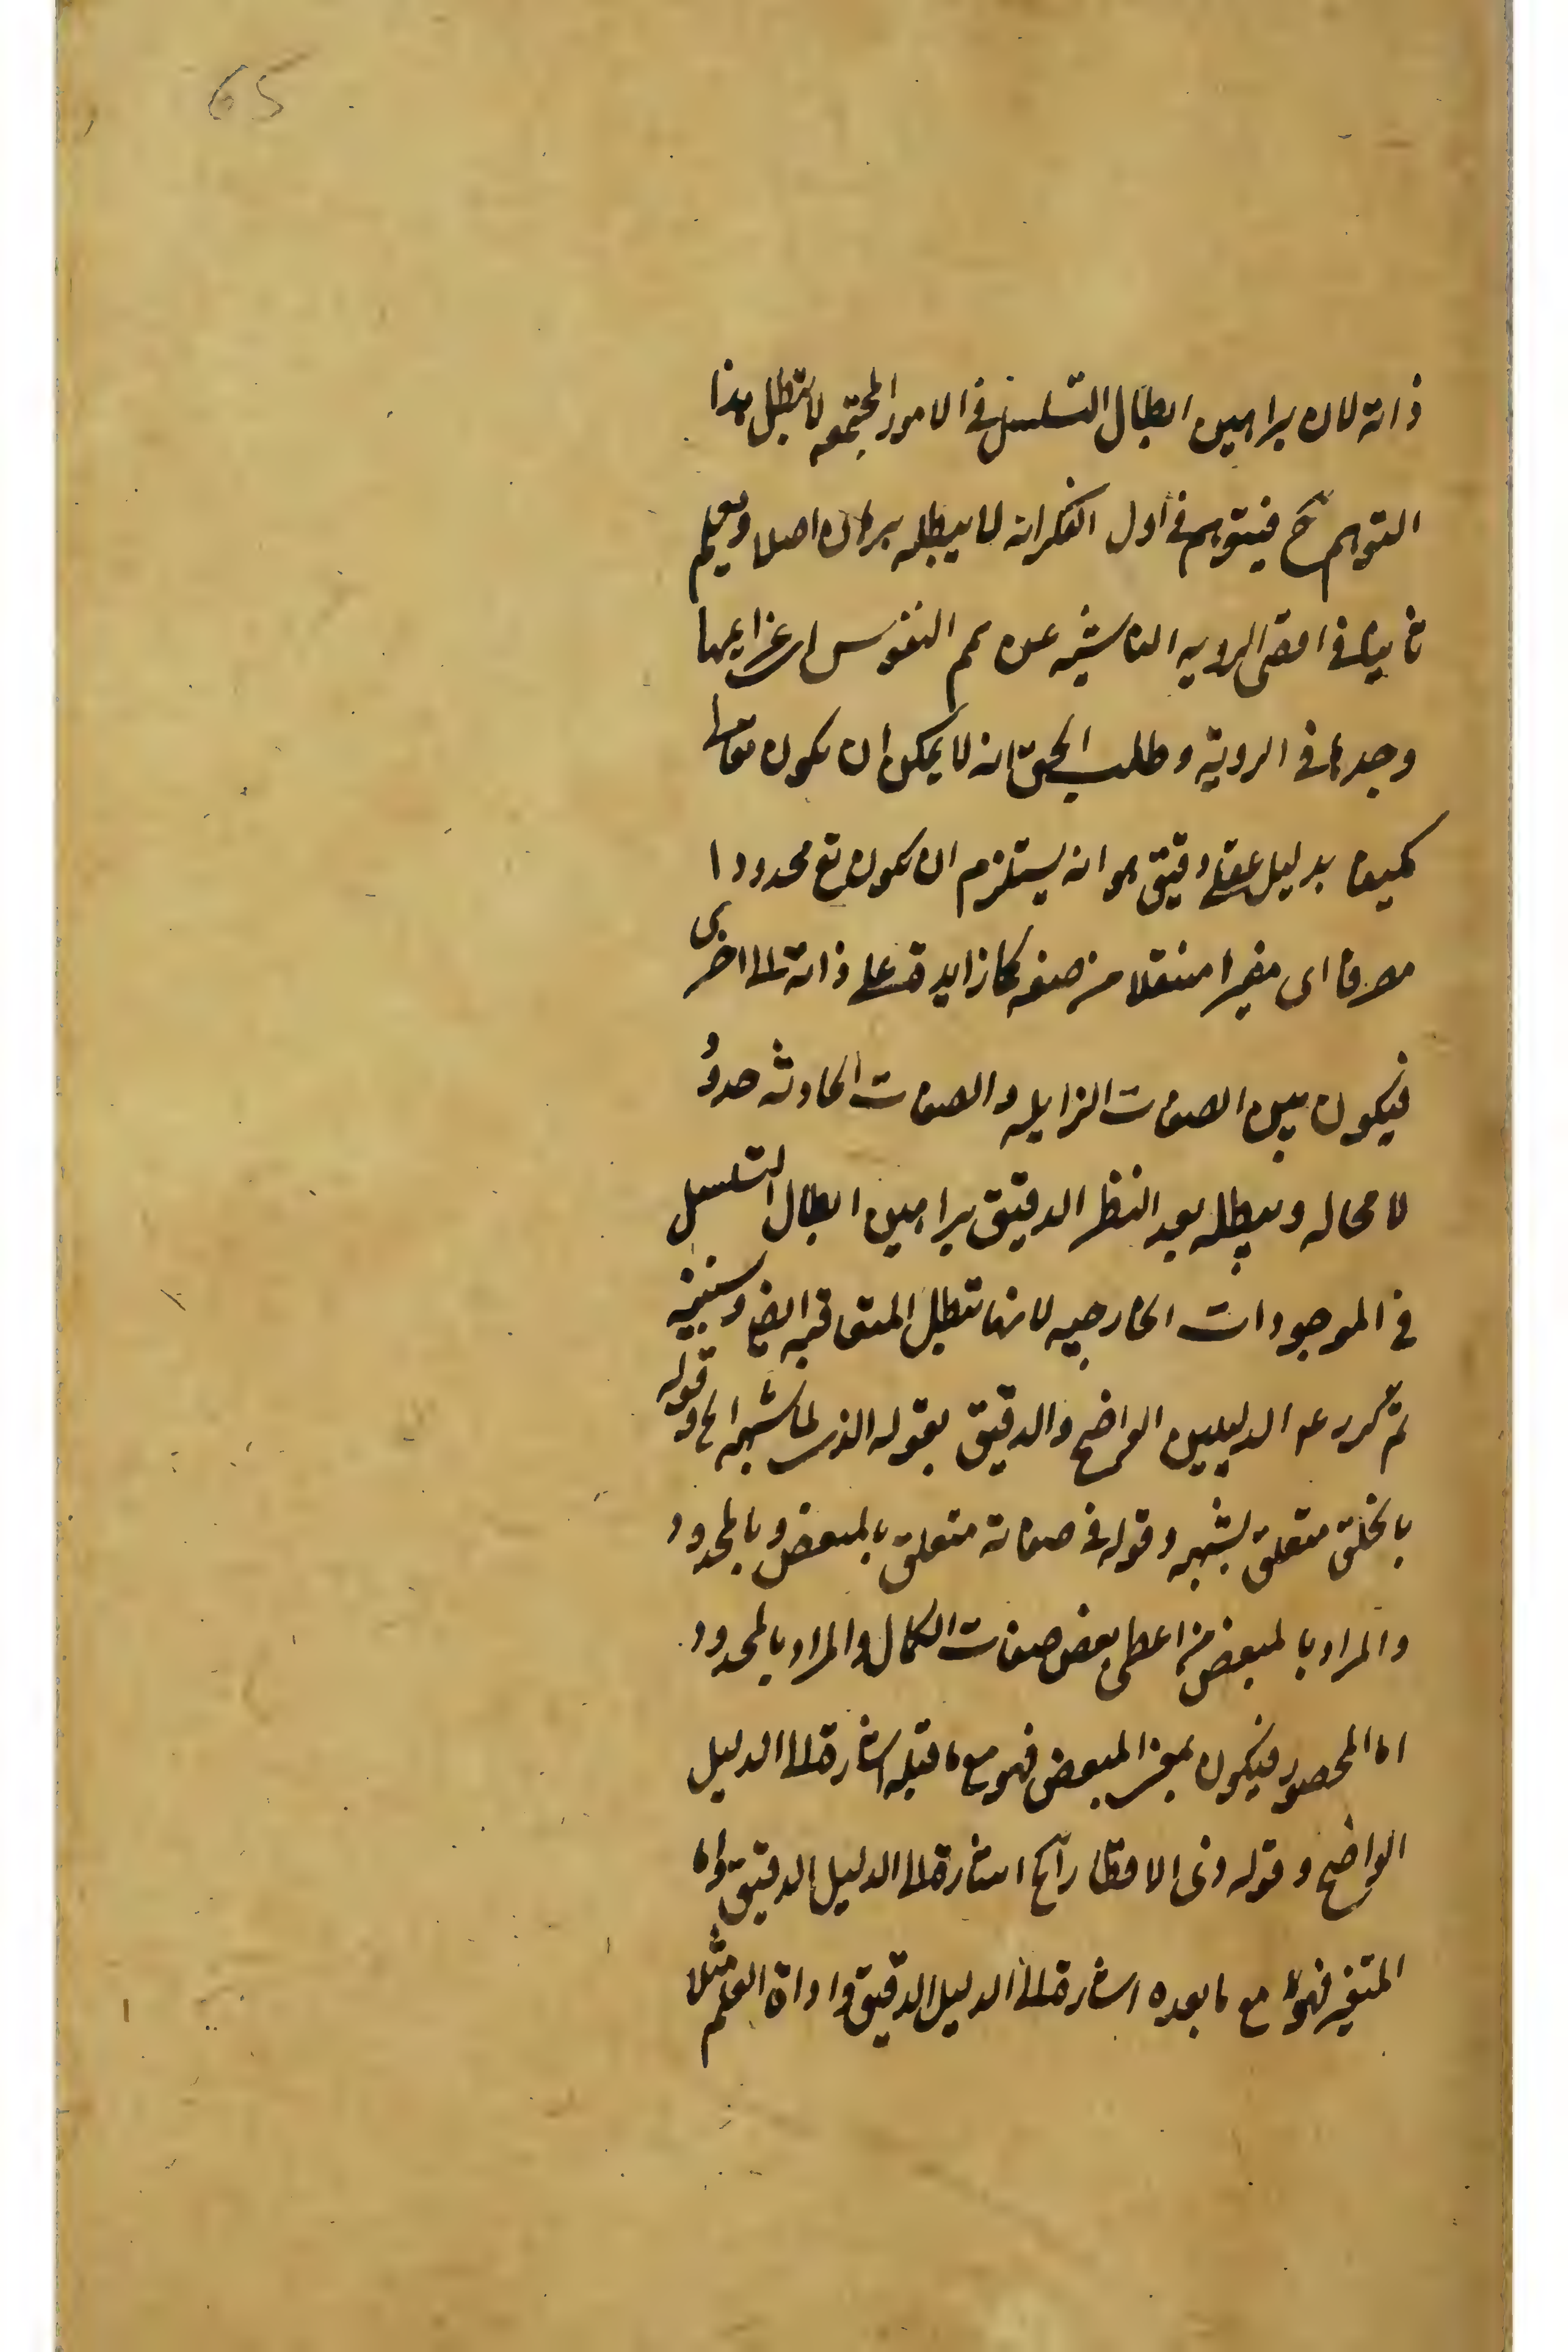 65
ذاته لان براهين ابطال التسلسل في الامور المجتمعه لا تبطل هذا
التوهم ح فيتوهم في اول الفكر انه لا يبطله برهان اصلا ويعلم
ثانيا في اقصى الرويه الناشيه عن همم النفوس اى عزايمها
وجدها في الروية وطلب الحق انه لا يمكن ان يكون تعالى
كميفا بدليل عقلي دقيق هو انه يستلزم ان يكون تع محدودا
مصرفا اى مغيرا منتقلا من صفه كما زايدة على ذاته الى اخرى
فيكون بين الصفات الزايله والصفات الحادثه حدود
لا محاله ويبطله بعد النظر الدقيق براهين ابطال التسلسل
في الموجودات الخارجيه لانها تبطل المتعاقبه ايضا وسنبينه
ثم كرر ع الدليلين الواضح والدقيق بقوله الذى لما شبهه الخ وقوله
بالخلق متعلق بشبهه وقوله في صفاته متعلق بالمبعض وبالمحدود
والمراد بالمبعض من اعطى بعض صفات الكمال والمراد بالمحدود
اما المحصور فيكون بمعنى المبعض فهو مع ما قبله اشارة الى الدليل
الواضح وقوله ذى الاقطار الخ اشارة الى الدليل الدقيق واما
المتغير فهو مع ما بعده اشارة الى الدليل الدقيق واداة العلم مثلا